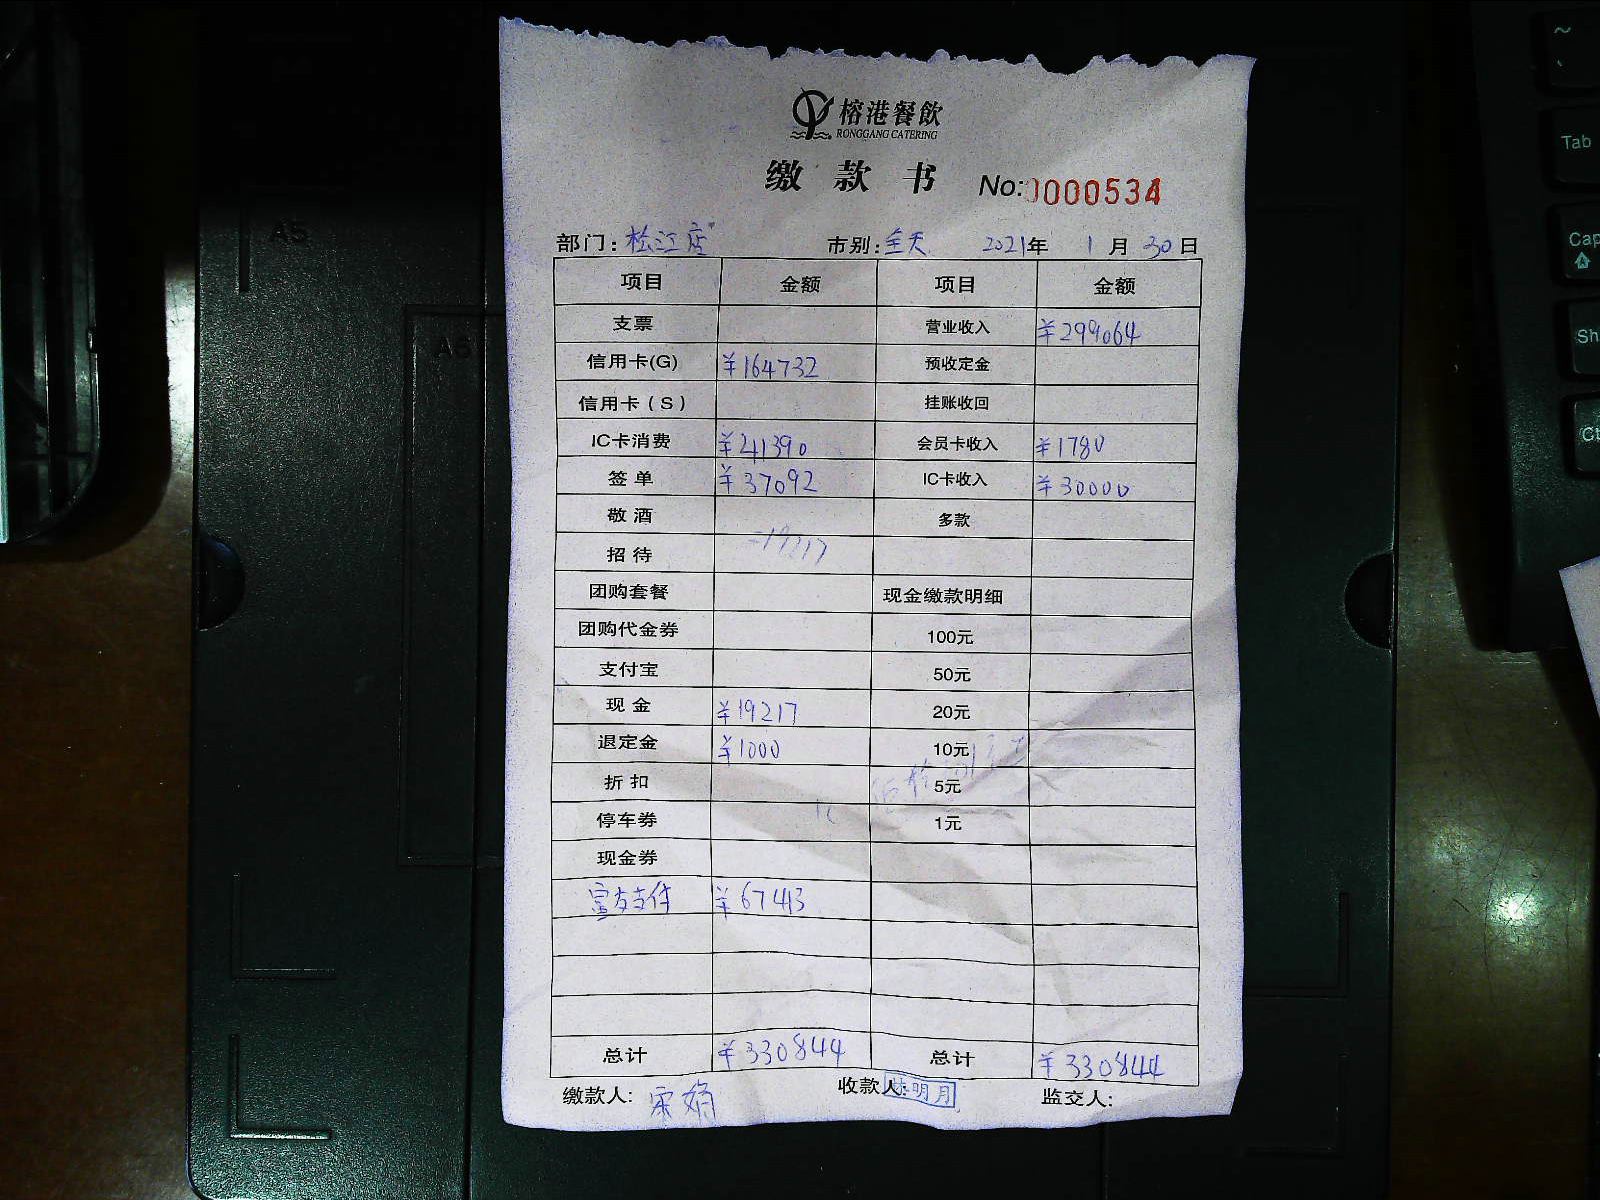 榕港餐飲
RONGGANG CATERING
缴款书 No:0000534
部门：松江店 市别：全天 2021年 1月 30日
项目 金额 项目 金额
支票 营业收入 ¥299064
信用卡(G) ¥164732 预收定金
信用卡（S） 挂账收回
IC卡消费 ¥41390 会员卡收入 ¥1780
签单 ¥37092 IC卡收入 ¥30000
敬酒 多款
招待 -19217
团购套餐 现金缴款明细
团购代金券 100元
支付宝 50元
现金 ¥19217 20元
退定金 ¥1000 10元
折扣 5元
停车券 1元
现金券
富友支付 ¥67413
总计 ¥330844 总计 ¥330844
缴款人: 宋娟 收款人: 明月 监交人:
A5
A6
~
Tab
Cap
Sh